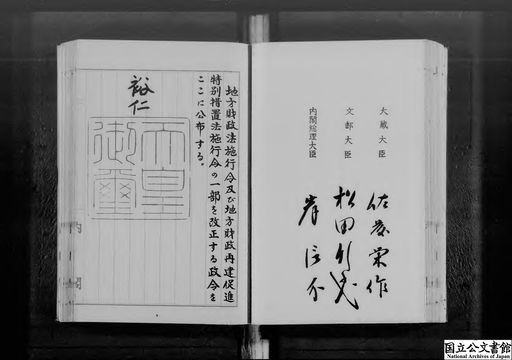 大蔵大臣 佐藤栄作
文部大臣 松田竹千代
内閣総理大臣 岸信介
地方財政法施行令及び地方財政再建促進
特別措置法施行令の一部を改正する政令を
ここに公布する。
裕仁
天皇
御璽
国立公文書館
National Archives of Japan